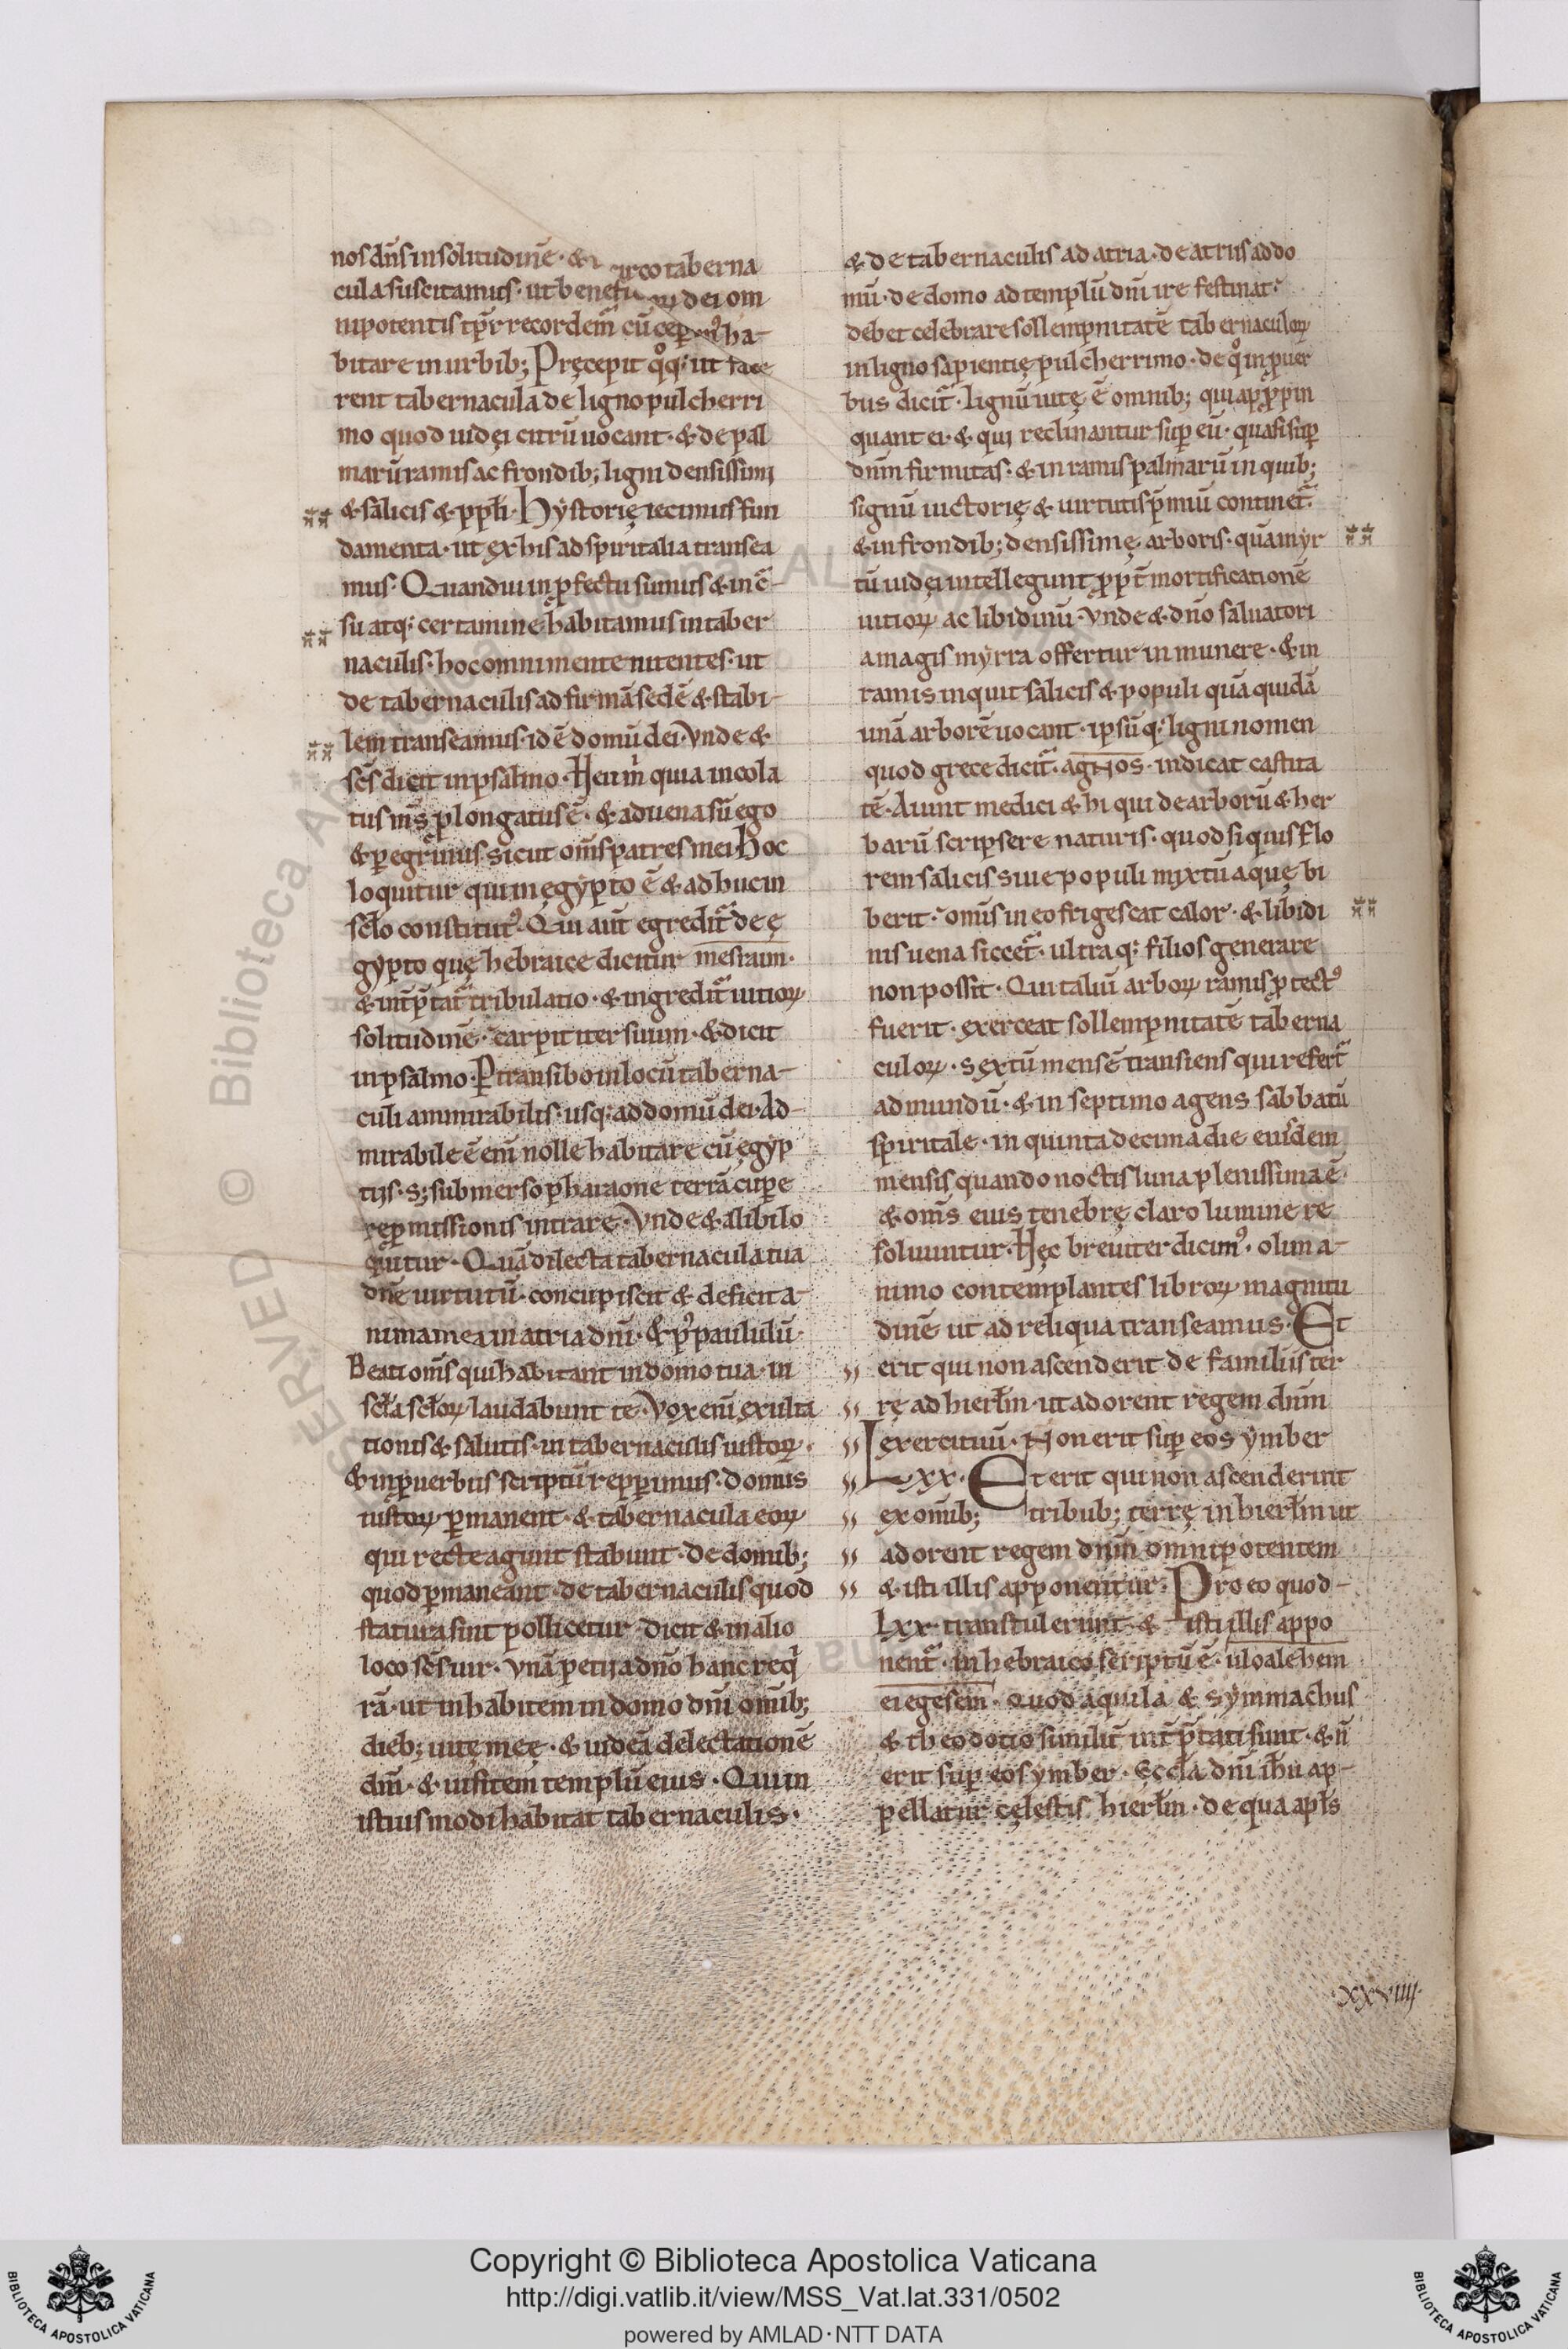 nos dñs in solitudinē · &
irco taberna
cula suscitamus · ut
dei om
nipotentis
cū
ha-
bitare in urbib; Pręcepit q̊q; ut face
rent tabernacula de ligno pulcherri
mo quod iudęi citrū uocant · & de pal
marū ramis ac frondib; ligni densissimi
& salicis & ppłi · Hystorię iecimus fun
damenta · ut ex his ad spiritalia transea
mus · Quandiu in ꝓfectu sumus & in c̄-
su atq; certamine · habitamus in taber
naculis · hoc omni mente nitentes · ut
de tabernaculis ad firmā sedē & stabi-
lem transeamus · id ē domū dei · Vnde &
scs̄ dicit in psalmo · Heu m̄ quia incola
tus ms̄ ꝓlongatus ē · & aduena sū ego
& ꝑegrinus sicut oms̄ patres mei · Hoc
loquitur qui in ęgypto ē & adhuc in
scło constitut᾽ · Qui aut̄ egredit̃ de ę
gypto quę hebraice dicitur mesraim ·
& int̄p̄tat̃ tribulatio · & ingredit̃ uitioꝝ
solitudinē · carpit iter suum · & dicit
in psalmo · Ꝑtransibo in locū taberna-
culi ammirabilis · usq; ad domū dei · Ad-
mirabile ē eni᷑ nolle habitare cū ęgyp
tijs · s; submerso pharaone terrā cupe
repmissionis intrare · Vnde & alibi lo
quitur · Quā dilecta tabernacula tua
dn̄e uirtutū · concupiscit & deficit a-
nima mea in atria dn̄i · & p᾽ paululū ·
Beati oms̄ qui habitant in domo tua · in
scła scłoꝝ laudabunt te · Vox eni᷑ exulta
tionis & salutis · in tabernaculis iustoꝝ ·
& in ꝓuerbiis scriptū repperimus · domus
iustoꝝ ꝑmanent · & tabernacula eoꝝ
qui recte agunt stabunt · de domib;
quod ꝑmaneant · de tabernaculis quod
statura sint pollicetur · Dicit & in alio
loco scs̄ uir · Vnā petij a dn̄o hanc req̇
rā · ut inhabitem in domo dn̄i omīb;
dieb; uitę meę · & uideā delectationē
dn̄i · & uisitem templū eius · Qui in
istiusmodi habitat tabernaculis ·
& de tabernaculis ad atria · de atriis ad do
mū · de domo ad templū dn̄i ire festinat ·
debet celebrare sollempnitatē tabernaculoꝝ
in ligno sapientię pulcherrimo · de q̊ in ꝓuer
biis dicit̃ · Lignū uitę ē omnib; qui apꝓpin
quant ei · & qui reclinantur sup̄ eū · quasi sup̄
dn̄m firmitas · & in ramis palmarū in quib;
signū uictorię & uirtutis p̄miū continet̃ ·
& in frondib; densissimę arboris · quā myr
tū iudęi intellegunt ꝓpt̄ mortificationē
uitioꝝ ac libidinū · Vnde & dn̄o saluatori
a magis myrra offertur in munere · & in
ramis inquit salicis & populi quā quidā
unā arborē uocant · ipsūq; ligni nomen
quod grece dicit̃ · agnos · indicat castita
tē · Aiunt medici & hi qui de arborū & her
barū scripsere naturis · quod siquis flo
rem salicis siue populi myxtū aquę bi
berit · omis̄ in eo frigescat calor · & libidi
nis uena siccet̃ · ultraq; filios generare
non possit · Qui taliū arboꝝ ramis ꝓtect᾽
fuerit · exerceat sollempnitatē taberna
culoꝝ · sextū mensē transiens qui refert̃
ad mundū · & in septimo agens sabbatū
spiritale · in quinta decima die eiusdem
mensis quando noctis luna plenissima ē ·
& oms̄ eius tenebrę claro lumine re
soluuntur · Hęc breuiter dicim᾽ · olim a-
nimo contemplantes libroꝝ magnitu
dinē ut ad reliqua transeamus · Et
erit qui non ascenderit de familiis ter
rę ad hierłm · ut adorent regem dn̄m
exercituū · Non erit sup̄ eos ymber
Lxx · Et erit qui non ascenderint
ex omīb; tribub; terrę in hierłm ut
adorent regem dn̄m omnipotentem
& isti illis apponentur · Pro eo quod-
Lxx · transtulerunt · & isti illis appo
nent̃ · in hebraico scriptū ē · uloalehem
eiegesem · Quod aquila & symmachus
& theodotio similit̄ int̄p̄tati sunt · & n̄
erit sup̄ eos ymber · Ęccła dn̄i ih̄u ap-
pellatur cęlestis hierłm · de qua apłs
·xxviiii·
Copyright © Biblioteca Apostolica Vaticana
http://digi.vatlib.it/view/MSS_Vat.lat.331/0502
powered by AMLAD·NTT DATA
BIBLIOTECA APOSTOLICA VATICANA
BIBLIOTECA APOSTOLICA VATICANA